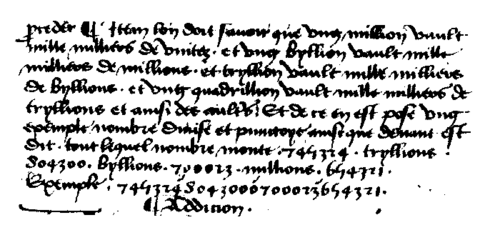 preceder ¶ Item lon doit savoir que ung million vault
mille milliers de unitez . et ung byllion vault mille
milliers de millions . et tryllion vault mille milliers
de byllions . et ung quadrillion vault mille milliers de
tryllions et ainsi des aultres . Et de ce en est pose ung
exemple nombre divise et punctoye ainsi que devant est
dit . tout lequel nombre monte . 745324 . tryllions .
804300 . byllions . 700023 . millions . 654321 .
Exemple . 745324804300700023654321 .
¶ Addicion .